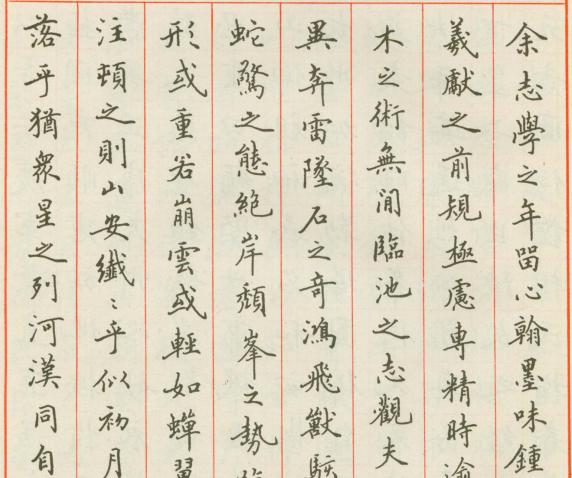 余志學之年留心翰墨味鍾
羲獻之前規極慮專精時逾
木之術無閒臨池之志觀夫
異奔雷墜石之奇鴻飛獸駭
蛇驚之態絕岸頹峯之勢
形或重若崩雲或輕如蟬翼
注頓之則山安纖〻乎似初月
落乎猶眾星之列河漢同自